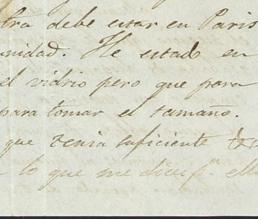 tra debe estar en Paris
unidad. He estado en
el vidrio pero que para
para tomar el tamaño.
que tenia suficiente
a lo que me dice